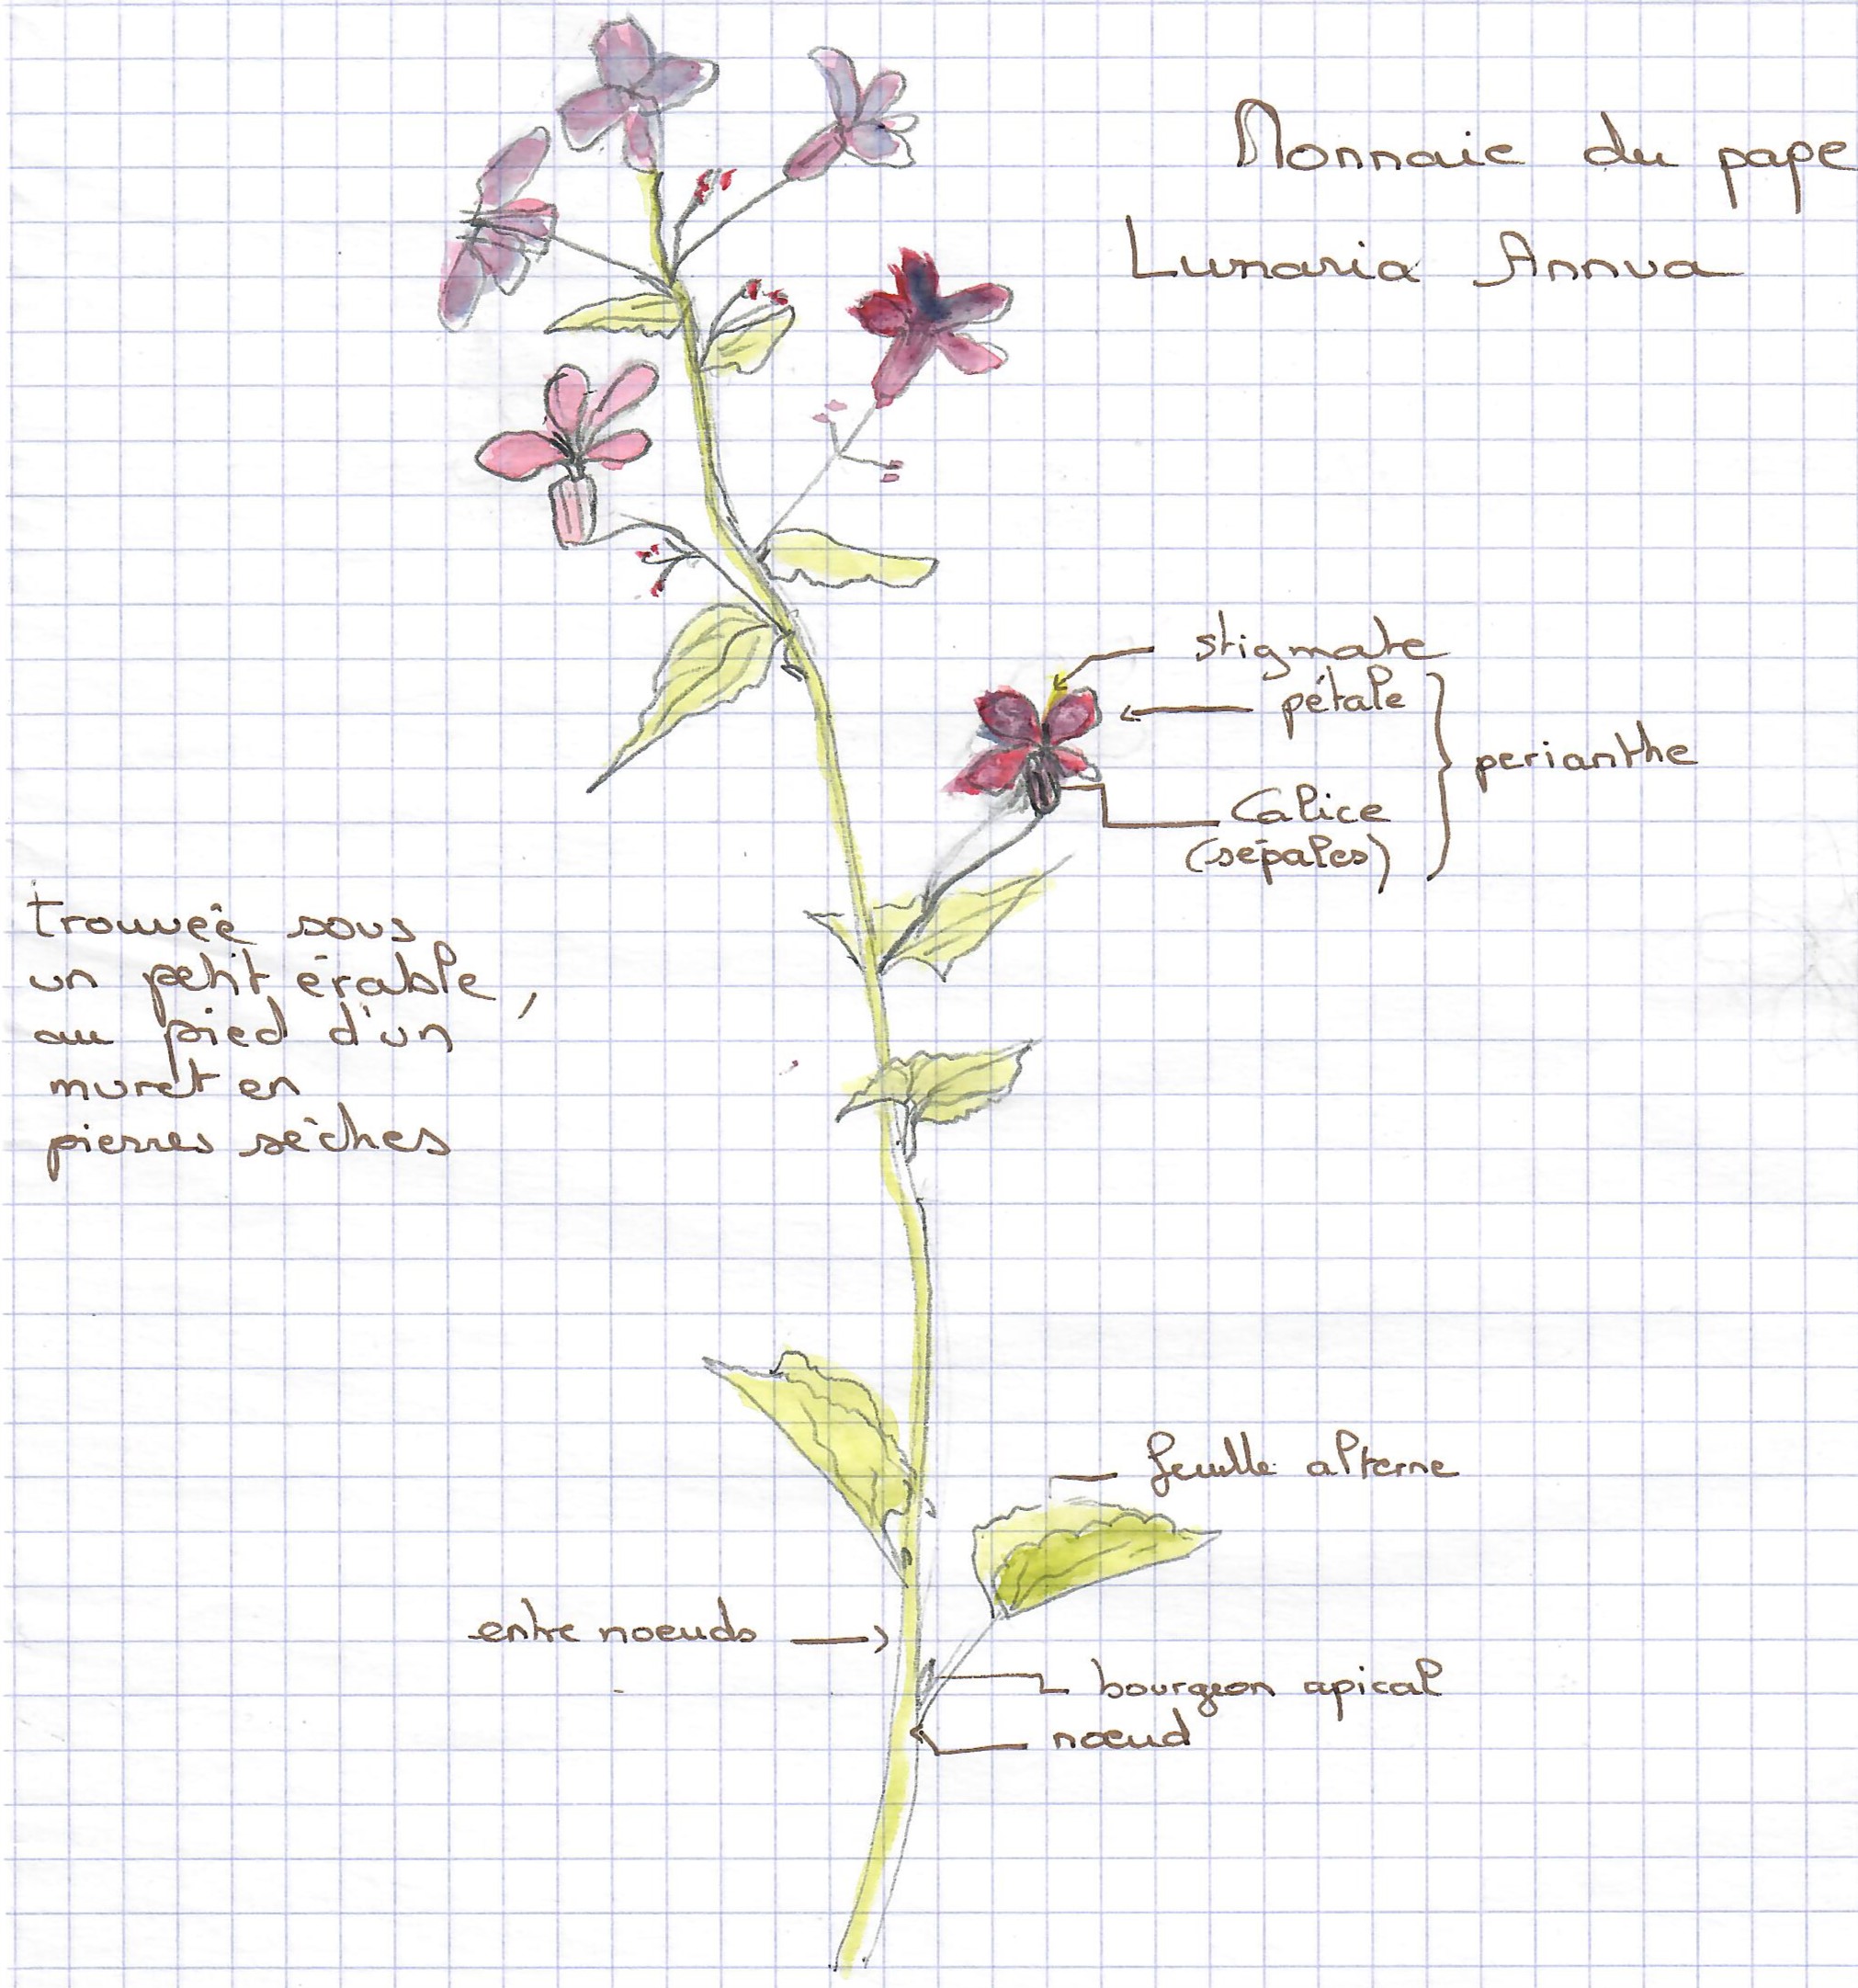 Monnaie du pape
Lunaria Annua
stigmate
pétale
perianthe
Calice
(sépales)
trouvée sous
un petit érable,
au pied d'un
muret en
pierres sèches
feuille alterne
entre noeuds
bourgeon apical
nœud